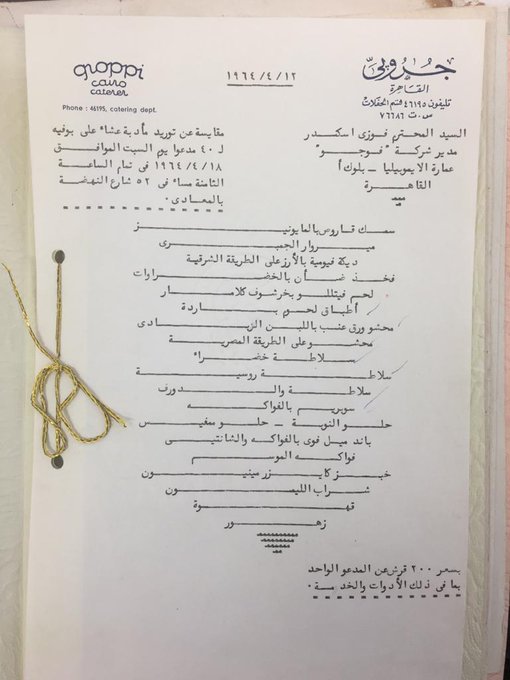 groppi
cairo
caterer
Phone : 46195, catering dept.
١٩٦٤/٤/١٢
جروبي
القاهرة
تليفون ٤٦١٩٥ قسم الحفلات
س.ت ٧٦٦٨٦
السيد المحترم فوزى اسكندر
مدير شركة " فوجو "
عمارة الايموبيليا - بلوك أ
القاهرة
مقايسة عن توريد مأدبة عشاء على بوفيه
لـ ٤٠ مدعوا يوم السبت الموافق
١٩٦٤/٤/١٨ فى تمام الساعة
الثامنة مساء فى ٥٢ شارع النهضة
بالمعادى.
سمك قاروص بالمايونيز
ميروار الجمبرى
ديكة فيومية بالأرز على الطريقة الشرقية
فخذ ضأن بالخضراوات
لحم فيتللو بخرشوف كلامار
أطباق لحوم باردة
محشو ورق عنب باللبن الزبادى
محشو على الطريقة المصرية
سلاطة خضراء
سلاطة روسية
سلاطة والدورف
سوبريم بالفواكه
حلو النوبة - حلو مغيس
باند ميل فوى بالفواكه والشانتيى
فواكه الموسم
خبز كايزر مينيون
شراب الليمون
قهوة
زهور
بسعر ٢٠٠ قرش عن المدعو الواحد
بما فى ذلك الأدوات والخدمة.